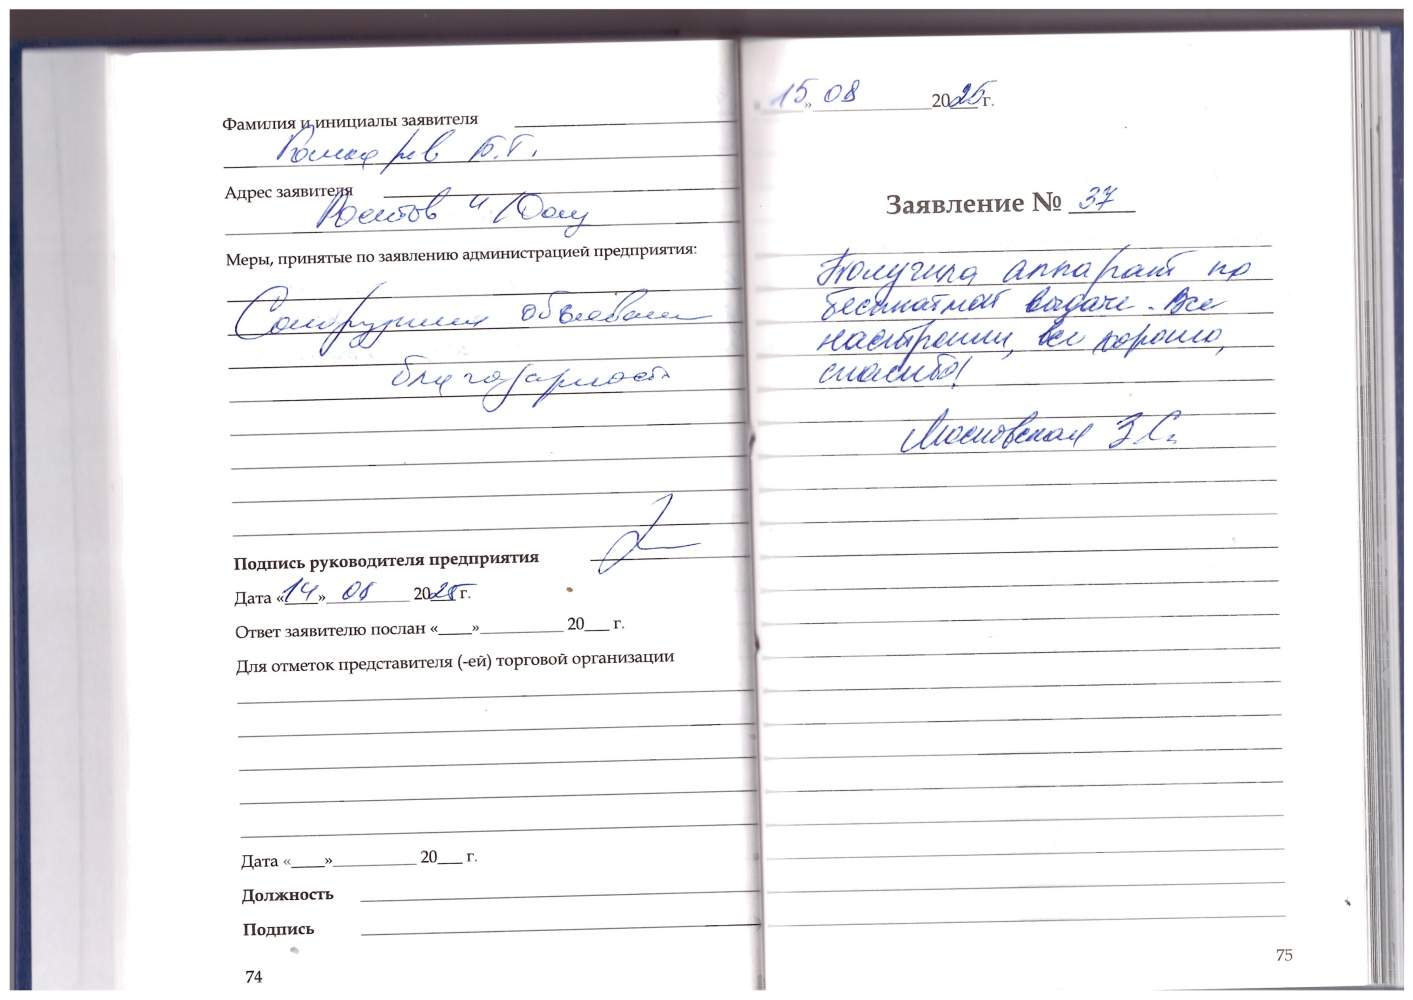 Фамилия и инициалы заявителя
Б.Г.
Адрес заявителя
Ростов н/Дону
Меры, принятые по заявлению администрацией предприятия:
Сотрудникам объявлена
благодарность
Подпись руководителя предприятия
Дата «14» 08 2025 г.
Ответ заявителю послан «____»__________ 20___ г.
Для отметок представителя (-ей) торговой организации
Дата «____»__________ 20___ г.
Должность
Подпись
74
15» 08 2025 г.
Заявление № 37
Получила аппарат по
бесплатной выдаче. Все
настроили, все хорошо,
спасибо!
Московская З.С.
75